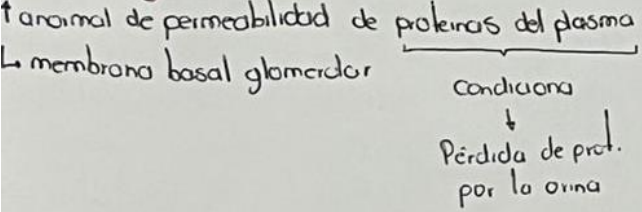 ↑ anormal de permeabilidad de proteinas del plasma
↳ membrana basal glomerular
Condiciona
↓
Pérdida de prot.
por la orina